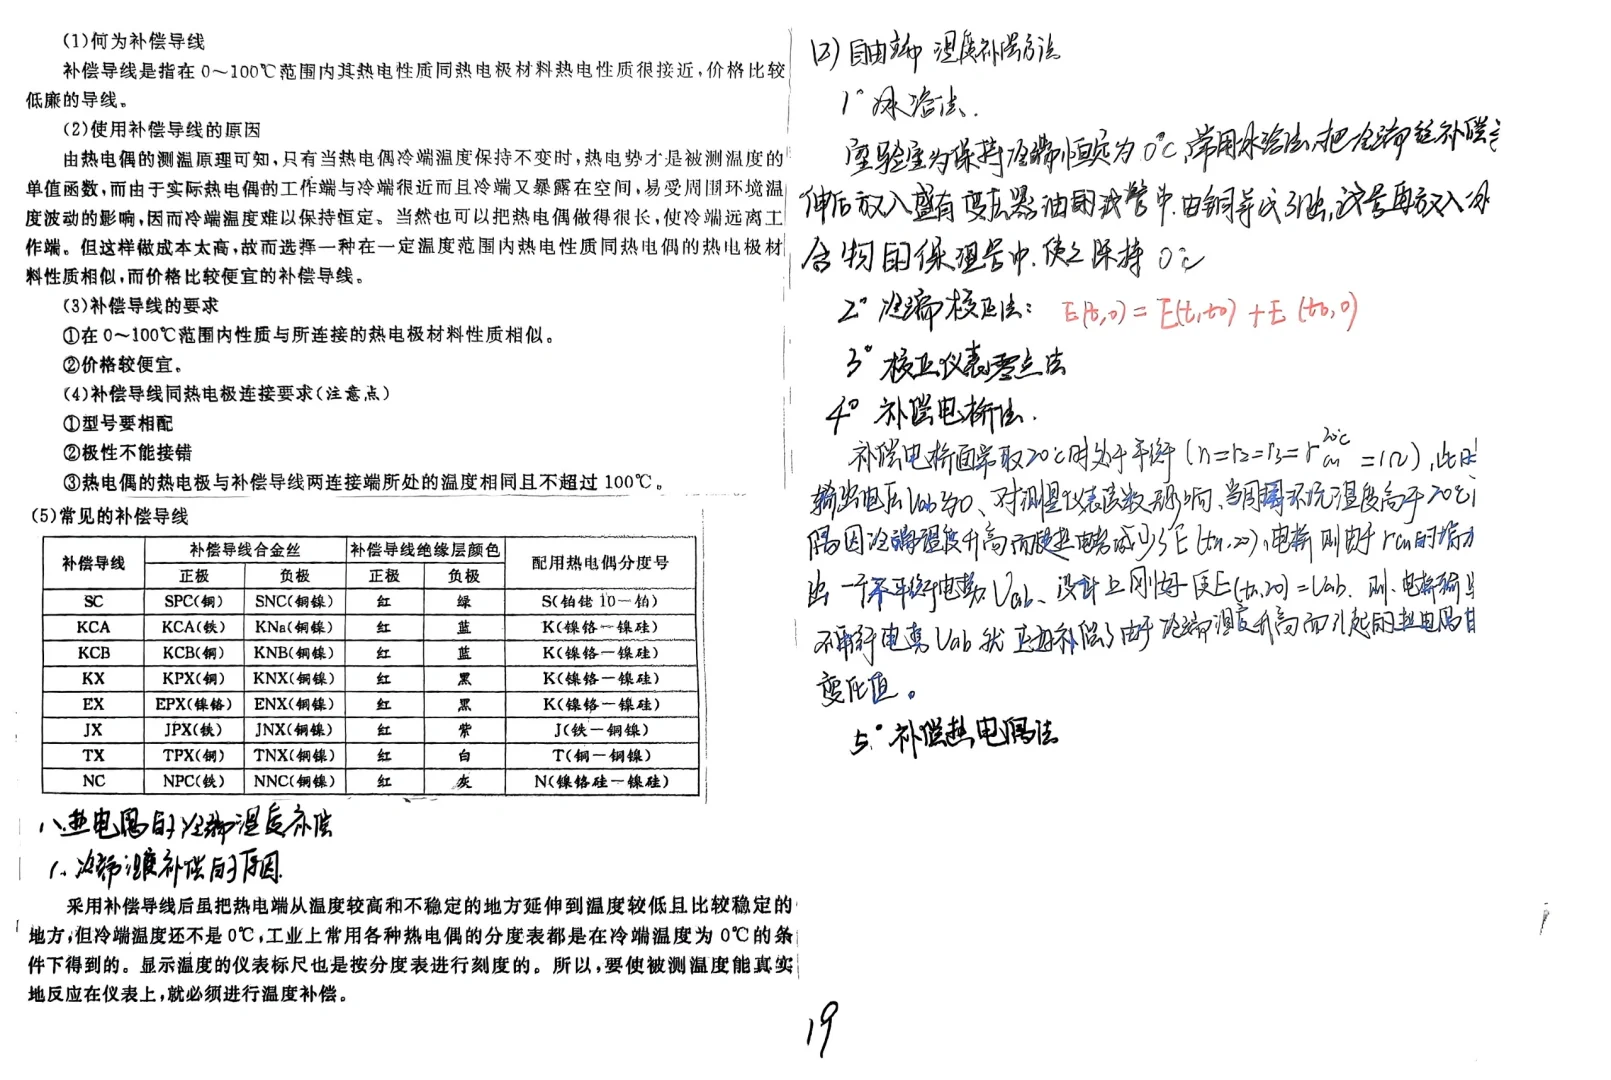 (1)何为补偿导线
补偿导线是指在 0～100℃范围内其热电性质同热电极材料热电性质很接近,价格比较
低廉的导线。
(2)使用补偿导线的原因
由热电偶的测温原理可知,只有当热电偶冷端温度保持不变时,热电势才是被测温度的
单值函数,而由于实际热电偶的工作端与冷端很近而且冷端又暴露在空间,易受周围环境温
度波动的影响,因而冷端温度难以保持恒定。当然也可以把热电偶做得很长,使冷端远离工
作端。但这样做成本太高,故而选择一种在一定温度范围内热电性质同热电偶的热电极材
料性质相似,而价格比较便宜的补偿导线。
(3)补偿导线的要求
①在 0～100℃范围内性质与所连接的热电极材料性质相似。
②价格较便宜。
(4)补偿导线同热电极连接要求(注意点)
①型号要相配
②极性不能接错
③热电偶的热电极与补偿导线两连接端所处的温度相同且不超过 100℃。
(5)常见的补偿导线
补偿导线 补偿导线合金丝 补偿导线绝缘层颜色 配用热电偶分度号
正极 负极 正极 负极
SC SPC(铜) SNC(铜镍) 红 绿 S(铂铑 10－铂)
KCA KCA(铁) KNa(铜镍) 红 蓝 K(镍铬－镍硅)
KCB KCB(铜) KNB(铜镍) 红 蓝 K(镍铬－镍硅)
KX KPX(铜) KNX(铜镍) 红 黑 K(镍铬－镍硅)
EX EPX(镍铬) ENX(铜镍) 红 黑 K(镍铬－镍硅)
JX JPX(铁) JNX(铜镍) 红 紫 J(铁－铜镍)
TX TPX(铜) TNX(铜镍) 红 白 T(铜－铜镍)
NC NPC(铁) NNC(铜镍) 红 灰 N(镍铬硅－镍硅)
八、热电偶的冷端温度补偿
1、冷端温度补偿的原因
采用补偿导线后虽把热电端从温度较高和不稳定的地方延伸到温度较低且比较稳定的
地方,但冷端温度还不是 0℃,工业上常用各种热电偶的分度表都是在冷端温度为 0℃的条
件下得到的。显示温度的仪表标尺也是按分度表进行刻度的。所以,要使被测温度能真实
地反应在仪表上,就必须进行温度补偿。
(2)自由端温度补偿方法
1° 冰浴法.
实验室为保持冷端恒定为0℃,常用冰浴法,把冷端经补偿
伸后放入盛有变压器油的试管中.由铜导线引出,试管再放入冰
合物的保温容中.使之保持0℃
2° 冷端校正法: E(t,0)=E(t,t0)+E(t0,0)
3° 校正仪表零点法
4° 补偿电桥法.
补偿电桥通常取20℃时处于平衡(r1=r2=r3=r cu 20℃=1Ω),此时
输出电压Uab为0、对测量仪表读数无影响,当周围环境温度高于20℃
偶因冷端温度升高而使热电势减少E(tn,20),电桥则由于rcu的增加
出一个不平衡电势Uab、设计上刚好使E(tn,20)=Uab.则、电桥输出
不平衡电势Uab就正好补偿了由于冷端温度升高而引起的热电偶
变化值。
5° 补偿热电偶法
19